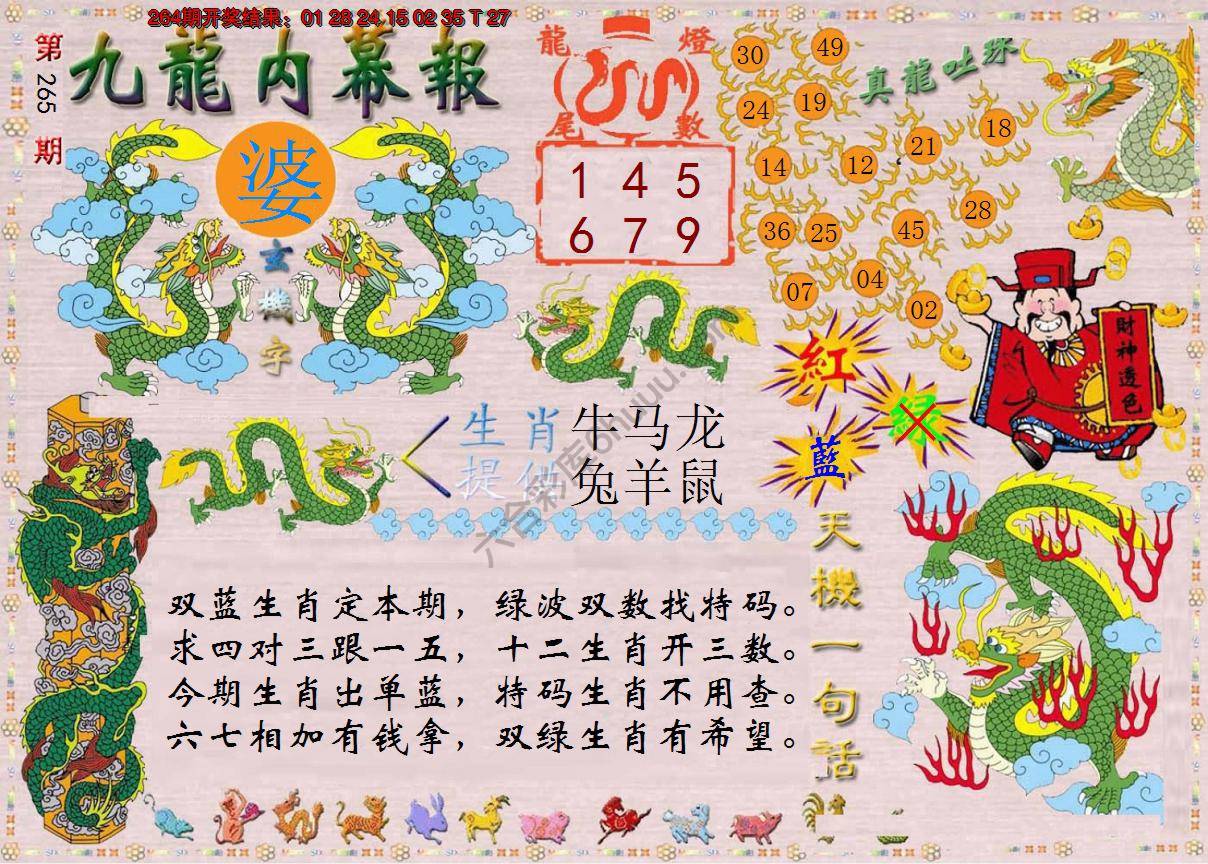 264期开奖结果：01 28 24 15 02 35 T 27
第265期
九龍内幕報
婆
玄機字
龍燈
尾數
1 4 5
6 7 9
真龍吐珠
30 49
24 19
14 12 21 18
36 25 45 28
07 04 02
紅
绿
藍
財神透色
生肖 牛马龙
提供 兔羊鼠
天機一句話
双蓝生肖定本期，绿波双数找特码。
求四对三跟一五，十二生肖开三数。
今期生肖出单蓝，特码生肖不用查。
六七相加有钱拿，双绿生肖有希望。